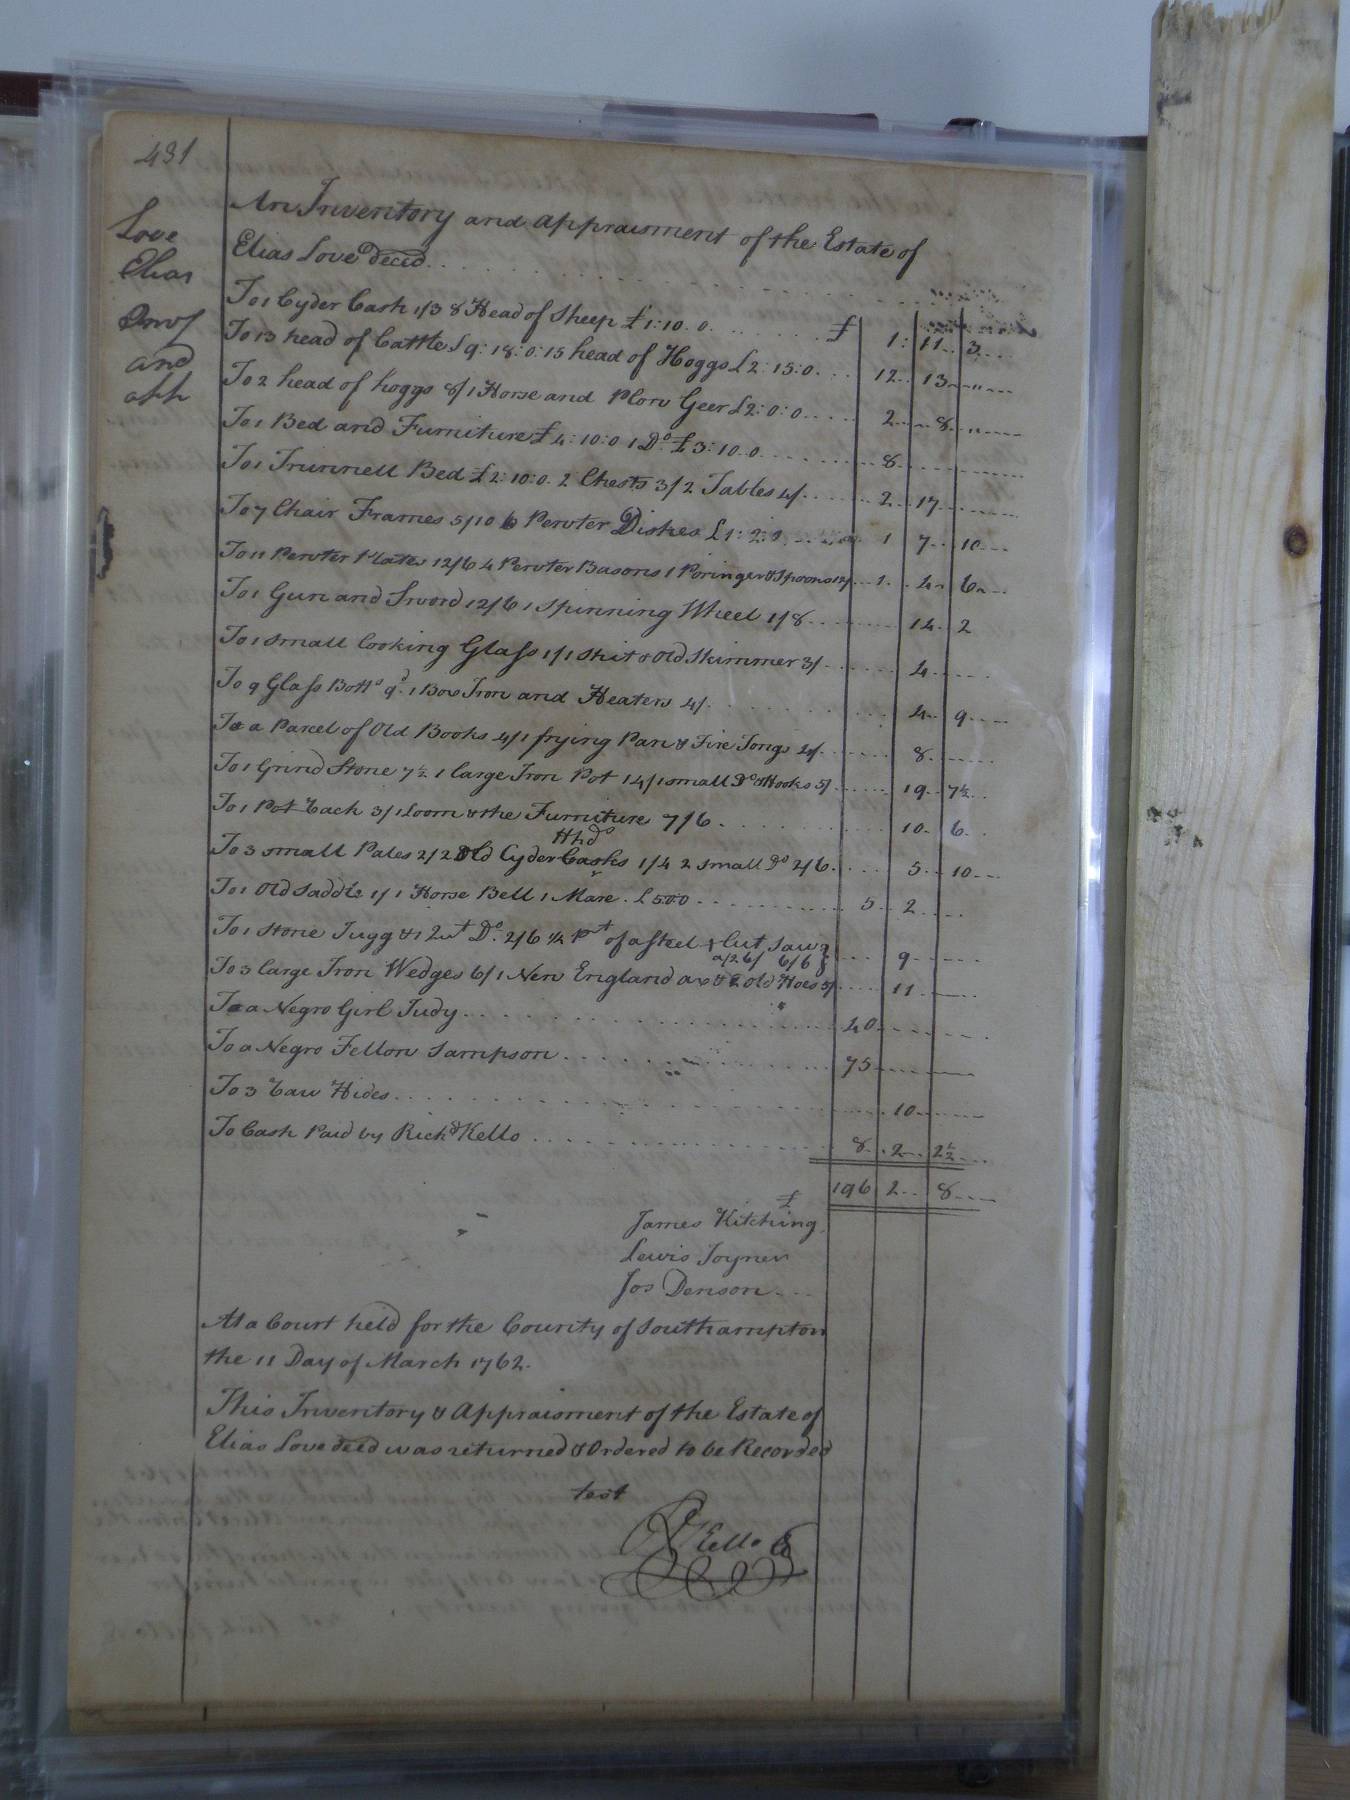 431
Love
Elias
Invy
and
app
An Inventory and appraisment of the Estate of
Elias Love decd.
To 1 Cyder Cask 1/3 8 Head of Sheep £1:10.0. £ 1: 11. 3
To 13 head of Cattle £9:18:0:15 head of Hoggs £2:15:0. 12. 13 "
To 2 head of hoggs 8/1 Horse and Plow Geer £2:0:0 2 8 "
To 1 Bed and Furniture £4:10:0 1 Do. £3:10.0 8
To 1 Trunnell Bed £2:10:0. 2 Chests 3/2 Tables 4/ 2 17
To 7 Chair Frames 5/10 6 Pewter Dishes £1:2:0 1 7 10
To 11 Pewter Plates 12/6 4 Pewter Basons 1 Poringer & Spoons 12/ 1 4 6
To 1 Gun and Sword 12/6 1 Spinning Wheel 1/8 14 2
To 1 small looking Glass 1/1 & Old Skimmer 3/ 4
To 9 Glass Botts 9d. 1 Box Iron and Heaters 4/ 4 9
To a Parcel of Old Books 4/1 frying Pan & Fire Tongs 4/ 8
To 1 Grind Stone 7½ 1 large Iron Pot 14/1 small Do & Hooks 5/ 19 7½
To 1 Pot Rack 3/1 Loom & the Furniture 7/6 10 6
Hhds
To 3 small Pales 2/2 Old Cyder Casks 1/4 2 small Do 2/6 5 10
To 1 Old Saddle 1/1 Horse Bell 1 Mare. £5.0.0 5 2
To 1 Stone Jugg & 1 2 Do. 2/6 ¼ pt of a Steel & Cut Saw 9
6/6
To 3 large Iron Wedges 6/1 New England ax & 2 old Hoes 5/ 11
To a Negro Girl Judy 40
To a Negro Fellow Sampson 75
To 3 Raw Hides 10
To Cash Paid by Richd Kello 8 2 2½
£ 196 2 8
James Kitching
Lewis Joyner
Jos Denson
At a Court held for the County of Southampton
the 11 Day of March 1762.
This Inventory & Appraisment of the Estate of
Elias Love decd was returned & Ordered to be Recorded
test
R Kello C